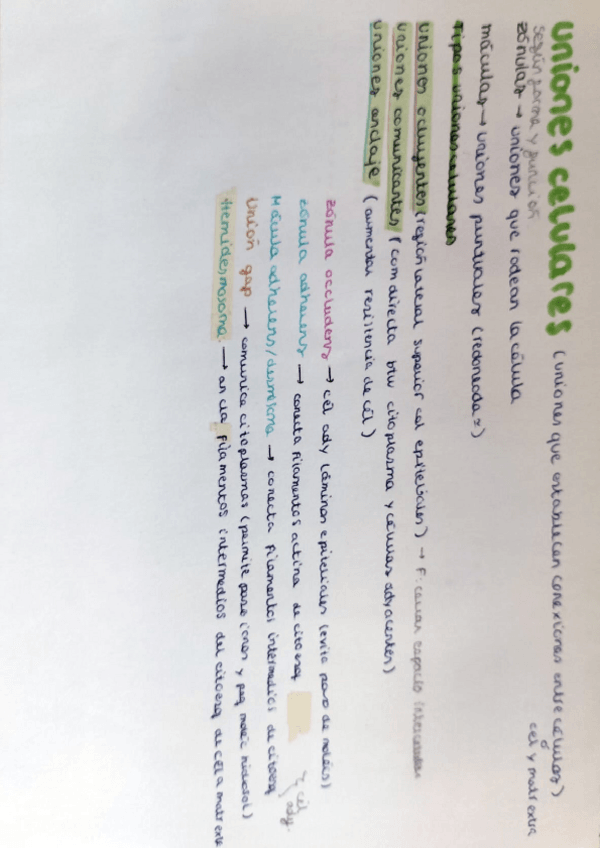 uniones celulares (uniones que establecen conexiones entre células)
cel y matr extra
según forma y función
zónulas → uniones que rodean la célula
máculas → uniones puntuales (redondeadas)
Tipos uniones celulares
uniones ocluyentes (región lateral superior cel epiteliales) → F: cierran espacio intercelular
uniones comunicantes (com directa btw citoplasma y células adyacentes)
uniones anclaje (aumentan resistencia de cél)
zónula occludens → cél ady láminas epiteliales (evita paso de moléc)
zónula adherens → conecta filamentos actina de citoesq
Mácula adherens/desmosoma → conecta filamentos intermedios de citoesq
cél ady.
unión gap → comunica citoplasmas (permite paso iones y peq moléc hidrosol)
Hemidesmosoma. → ancla filamentos intermedios del citoesq de cél a matr extr